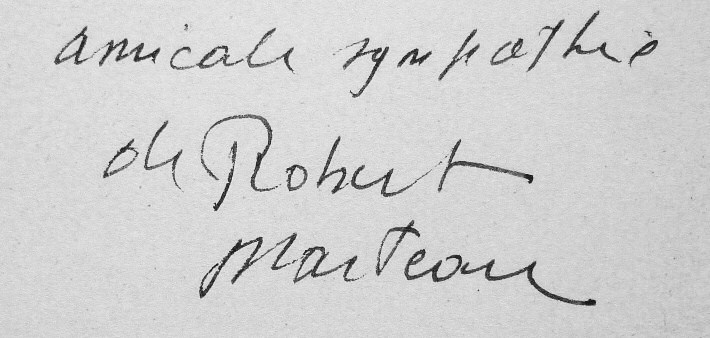 amicale sympathie
de Robert
Marteau